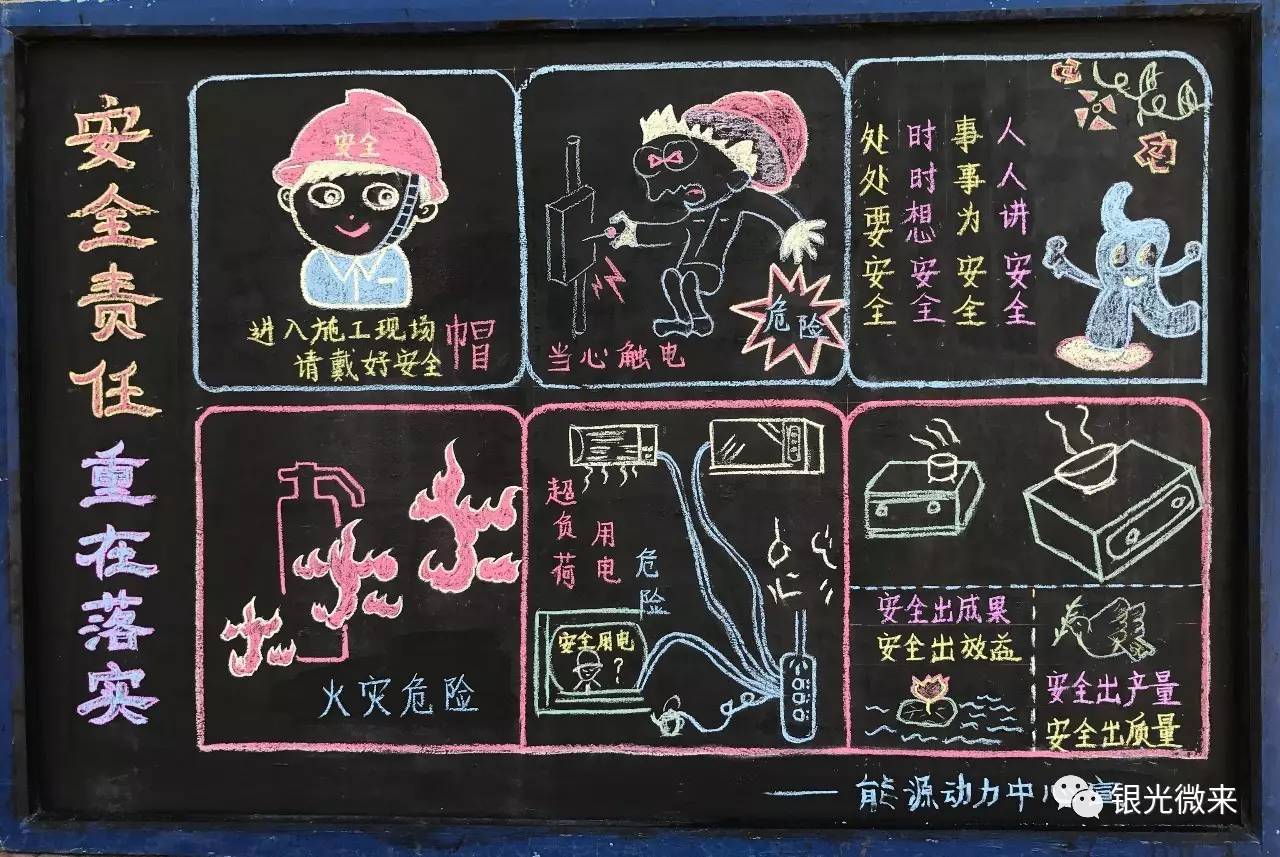 安全责任
重在落实
安全
进入施工现场
请戴好安全帽
当心触电
危险
人人讲安全
事事为安全
时时想安全
处处要安全
火灾危险
超负荷
用电
危险
安全用电
?
安全出成果
安全出效益
安全出产量
安全出质量
——能源动力中心
银光微来